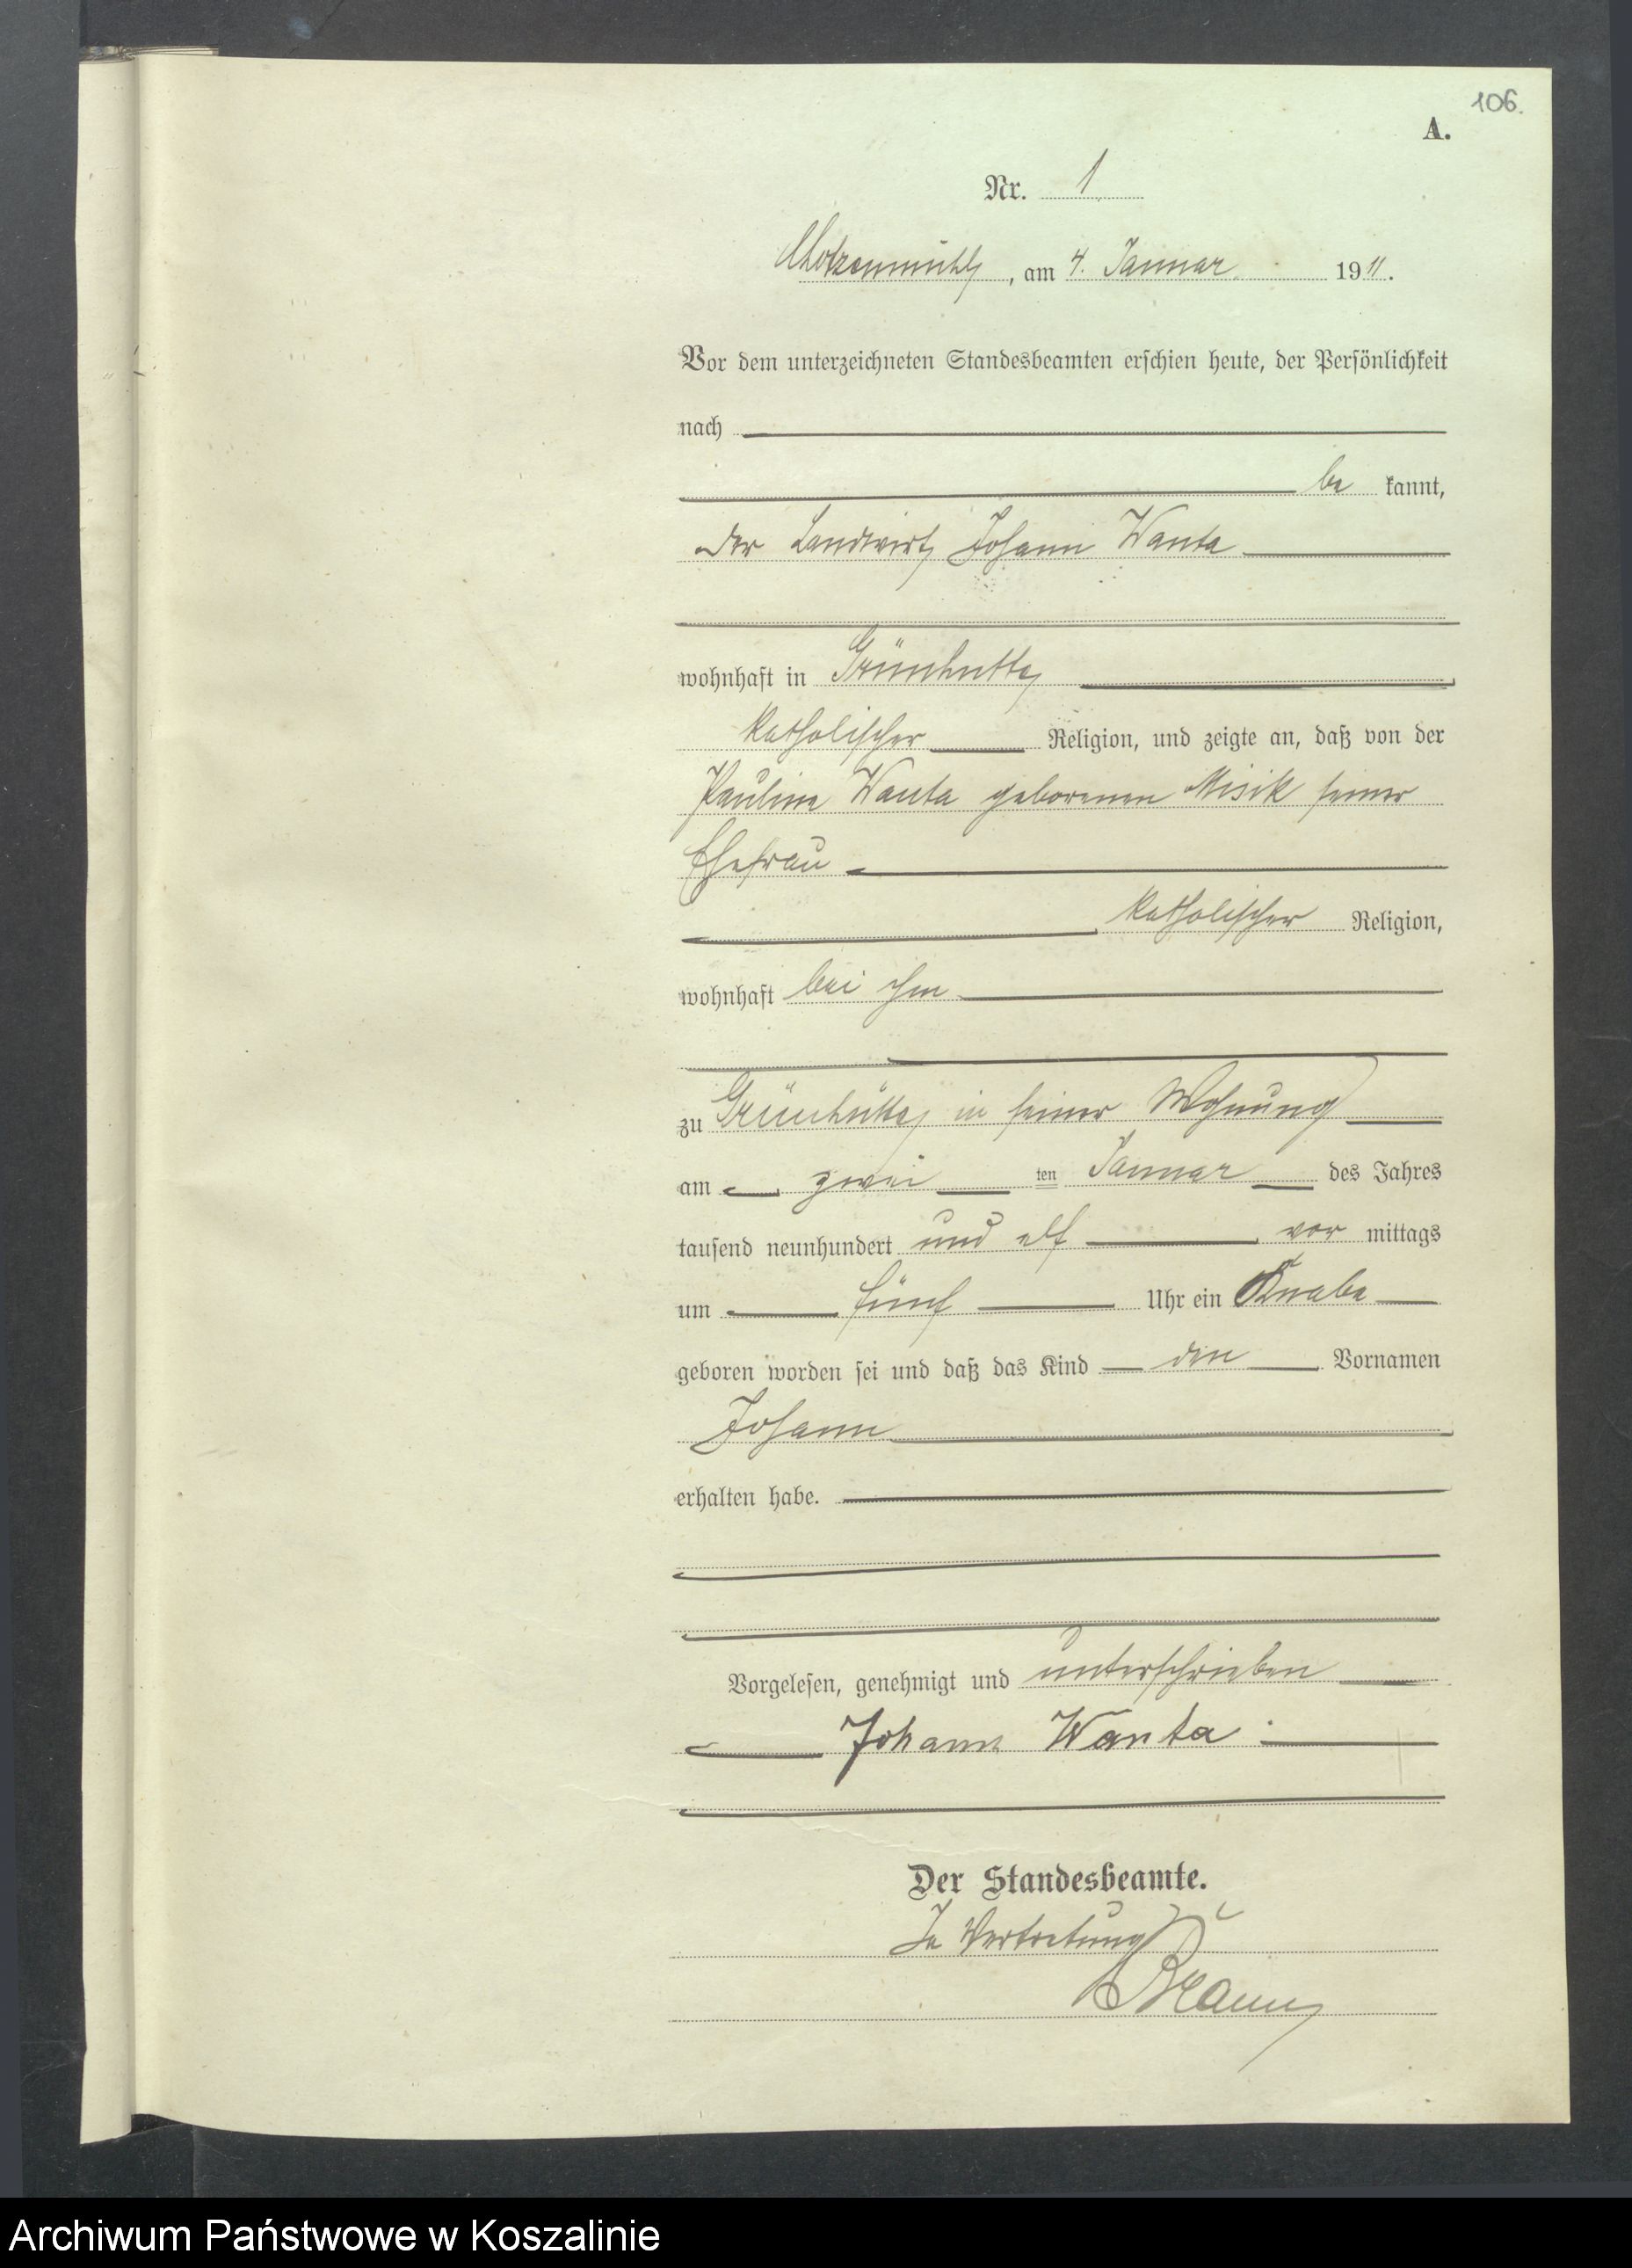 106.
A.
Nr. 1
Chotzenmühle, am 4. Januar 1911.
Vor dem unterzeichneten Standesbeamten erschien heute, der Persönlichkeit
nach
be kannt,
der Landwirth Johann Wanta
wohnhaft in Grünhutte
katholischer Religion, und zeigte an, daß von der
Pauline Wanta geborenen Misik seiner
Ehefrau
katholischer Religion,
wohnhaft bei ihm
zu Grünhütte in seiner Wohnung
am zwei ten Januar des Jahres
tausend neunhundert und elf vor mittags
um fünf Uhr ein Knabe
geboren worden sei und daß das Kind den Vornamen
Johann
erhalten habe.
Vorgelesen, genehmigt und unterschrieben
Johann Wanta
Der Standesbeamte.
In Vertretung
Archiwum Państwowe w Koszalinie